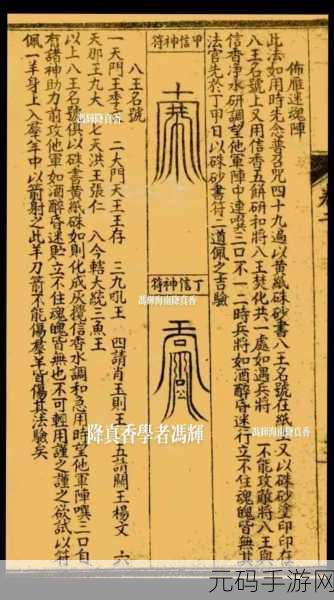 佈雁迷魂陣
此法如用時先念普召咒四十九遍以黃紙硃砂書八王名號在紙
八王名號上又用信香五餅研和將八王焚化共一處如遇兵將
信香淨水研調望他軍陣中連噀三口不一二時兵將如酒醉昏迷行立不住魂魄皆無其
法官先於丁甲日以硃砂書符二道佩之吉驗
甲信神符
丁信神符
八王名號
一天門王李
二大門天王王存
三九吼王
四請肖王則王
五請關王楊文
六
天那王九大
七天洪王張仁
八今轄大統三魚王
以上八王名號俱以硃書黃紙硃如則化成灰攪信香水調和急用時望他軍陣噀三口自
有諸神助力前攻他軍如酒醉昏迷貯立不住魂魄皆無也不可輕用謹之謹之欲試以符
佩一羊身上入羣羊中以箭射之此羊刀箭不能傷羣羊皆傷其法驗矣
馮輝海南降真香
馮輝海南降真香
降真香學者馮輝
馮輝海南降真香
元码手游网